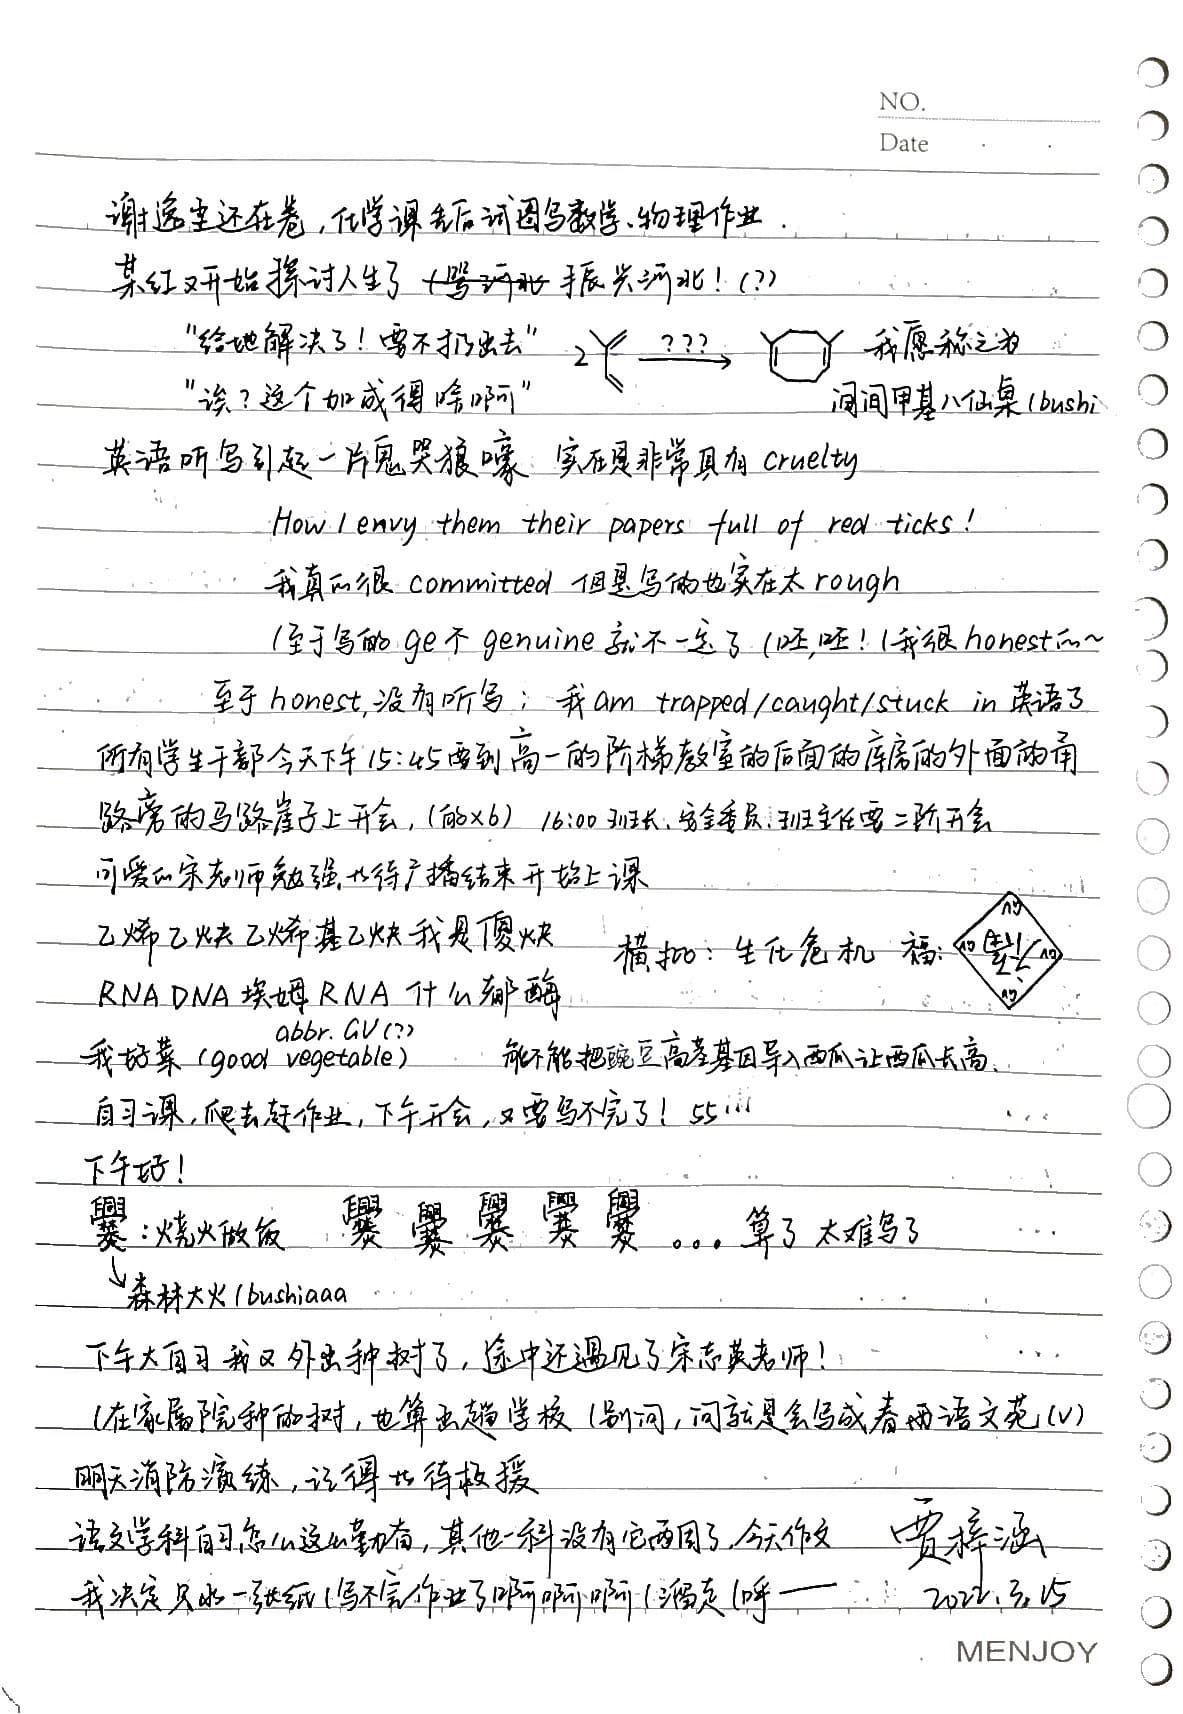 NO.
Date
谢逸尘还在卷，化学课丢后试图写数学、物理作业.
某红又开始探讨人生了 振兴河北！(？)
"给地解决了！要不扔出去" 2 ??? 我愿称之为
"诶？这个加成得啥啊" 间间甲基八仙桌(bushi
英语听写引起一片鬼哭狼嚎 实在是非常具有 cruelty
How I envy them their papers full of red ticks!
我真的很 committed 但是写的也实在太 rough
(至于写的 ge 不 genuine 就不一定了(呸,呸！(我很 honest 的~
至于 honest, 没有听写；我 am trapped/caught/stuck in 英语了
所有学生干部今天下午15:45要到高一的阶梯教室的后面的库房的外面的甬
路旁的马路崖子上开会，(的×6) 16:00 班长、安全委员、班主任要二阶开会
可爱的宋老师勉强等待广播结束开始上课
乙烯乙炔乙烯基乙炔我是傻炔 横批：生化危机 福：
RNA DNA 埃姆RNA 什么都酶
abbr. GV(?)
我好菜 (good vegetable) 能不能把豌豆高茎基因导入西瓜让西瓜长高.
自习课,爬去赶作业，下午开会，又要写不完了！55'''
下午好！
爨：烧火做饭 爨 爨 爨 爨 爨 ... 算了 太难写了
森林大火(bushiaaa
下午大自习我又外出种树了，途中还遇见了宋志英老师！
(在家属院种的树，也算出趟学校(别问，问就是会写成春雨语文苑(V)
明天消防演练，记得等待救援
语文学科自习怎么这么勤奋，其他一科没有它两周了，今天作文
我决定只水一张纸(写不完作业了啊啊啊(溜走(呼——
贾梓涵
2022.3.15
MENJOY